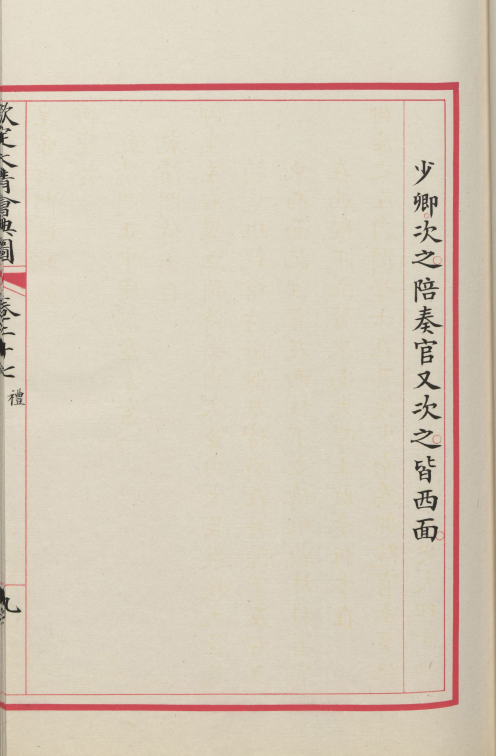 少卿次之陪奏官又次之皆西面
欽定大清會典圖
卷二十七
禮
九